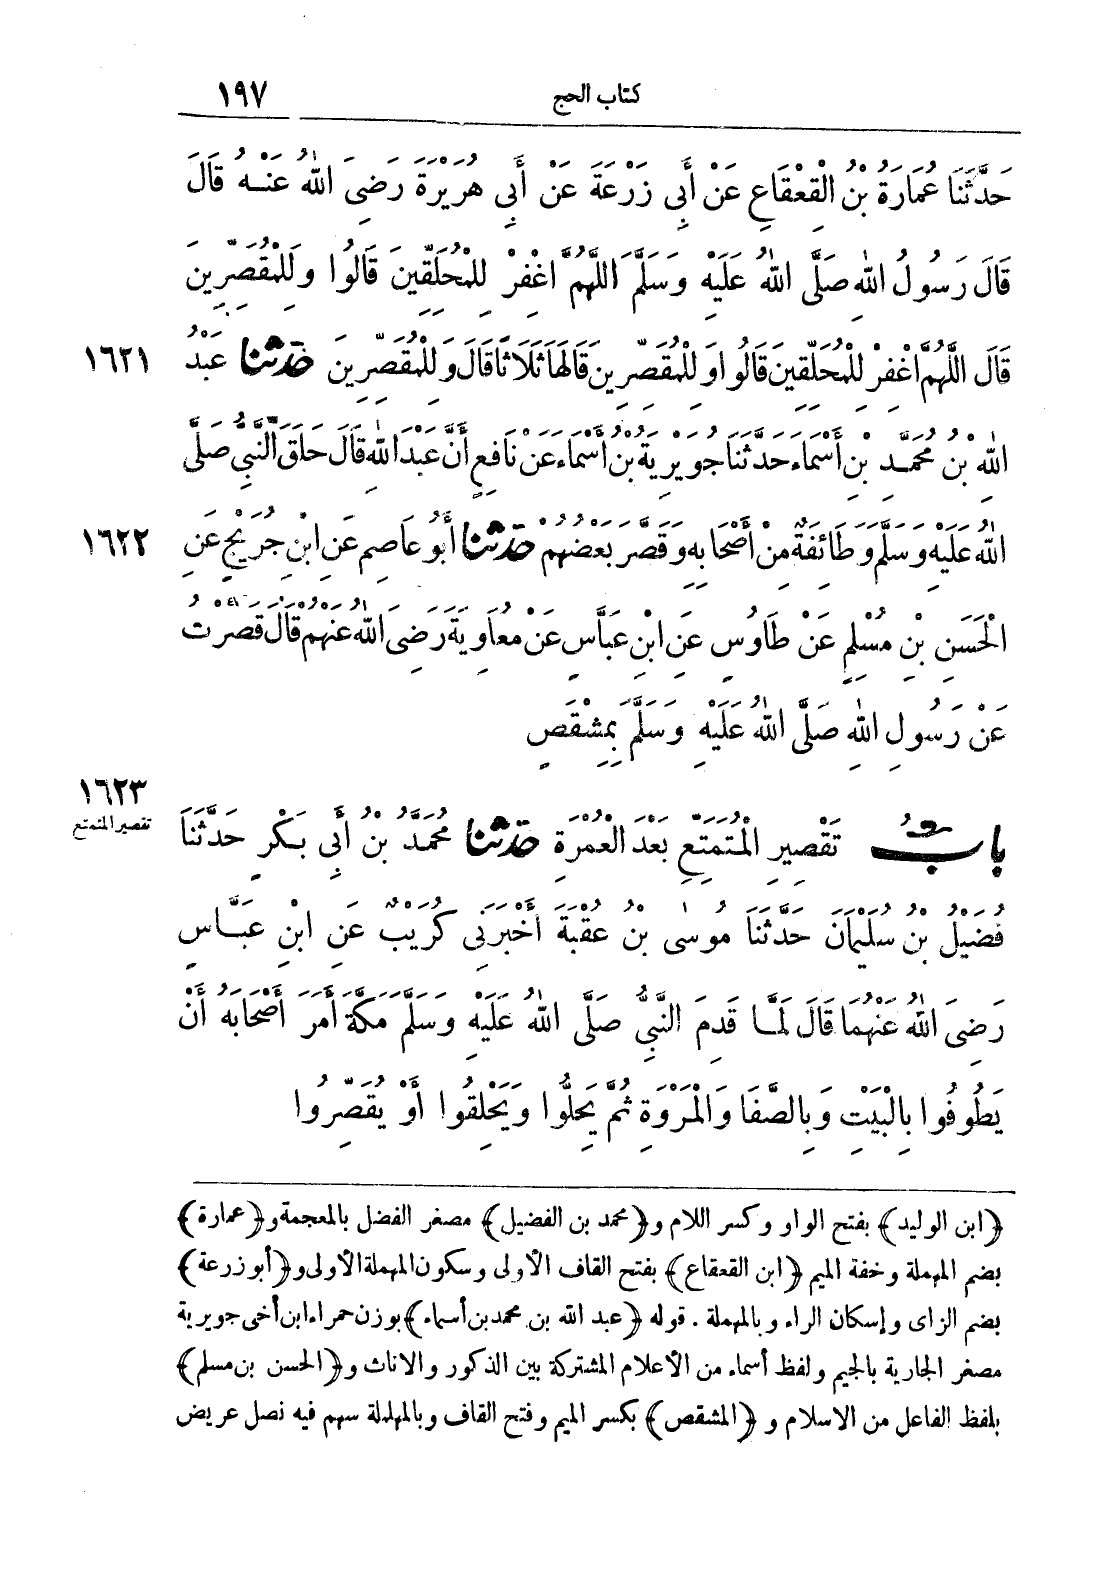 كتاب الحج ١٩٧
حَدَّثَنَا عُمَارَةُ بْنُ الْقَعْقَاعِ عَنْ أَبِي زَرْعَةَ عَنْ أَبِي هُرَيْرَةَ رَضِيَ اللّٰهُ عَنْهُ قَالَ
قَالَ رَسُولُ اللّٰهِ صَلَّى اللّٰهُ عَلَيْهِ وَسَلَّمَ اللَّهُمَّ اغْفِرْ لِلْمُحَلِّقِينَ قَالُوا وَلِلْمُقَصِّرِينَ
قَالَ اللَّهُمَّ اغْفِرْ لِلْمُحَلِّقِينَ قَالُوا وَلِلْمُقَصِّرِينَ قَالَهَا ثَلَاثًا قَالَ وَلِلْمُقَصِّرِينَ حَدَّثَنَا عَبْدُ ١٦٢١
اللّٰهِ بْنُ مُحَمَّدِ بْنِ أَسْمَاءَ حَدَّثَنَا جُوَيْرِيَةُ بْنُ أَسْمَاءَ عَنْ نَافِعٍ أَنَّ عَبْدَ اللّٰهِ قَالَ حَلَقَ النَّبِيُّ صَلَّى
اللّٰهُ عَلَيْهِ وَسَلَّمَ وَطَائِفَةٌ مِنْ أَصْحَابِهِ وَقَصَّرَ بَعْضُهُمْ حَدَّثَنَا أَبُو عَاصِمٍ عَنِ ابْنِ جُرَيْجٍ عَنِ ١٦٢٢
الْحَسَنِ بْنِ مُسْلِمٍ عَنْ طَاوُسٍ عَنِ ابْنِ عَبَّاسٍ عَنْ مُعَاوِيَةَ رَضِيَ اللّٰهُ عَنْهُمْ قَالَ قَصَّرْتُ
عَنْ رَسُولِ اللّٰهِ صَلَّى اللّٰهُ عَلَيْهِ وَسَلَّمَ بِمِشْقَصٍ
١٦٢٣
تقصير المتمتع
بَابُ تَقْصِيرِ الْمُتَمَتِّعِ بَعْدَ الْعُمْرَةِ حَدَّثَنَا مُحَمَّدُ بْنُ أَبِي بَكْرٍ حَدَّثَنَا
فُضَيْلُ بْنُ سُلَيْمَانَ حَدَّثَنَا مُوسَى بْنُ عُقْبَةَ أَخْبَرَنِي كُرَيْبٌ عَنِ ابْنِ عَبَّاسٍ
رَضِيَ اللّٰهُ عَنْهُمَا قَالَ لَمَّا قَدِمَ النَّبِيُّ صَلَّى اللّٰهُ عَلَيْهِ وَسَلَّمَ مَكَّةَ أَمَرَ أَصْحَابَهُ أَنْ
يَطُوفُوا بِالْبَيْتِ وَبِالصَّفَا وَالْمَرْوَةِ ثُمَّ يَحِلُّوا وَيَحْلِقُوا أَوْ يُقَصِّرُوا
﴿ابن الوليد﴾ بفتح الواو وكسر اللام و﴿محمد بن الفضيل﴾ مصغر الفضل بالمعجمة و﴿عمارة﴾
بضم المهملة وخفة الميم ﴿ابن القعقاع﴾ بفتح القاف الأولى وسكون المهملة الأولى و﴿أبو زرعة﴾
بضم الزاى وإسكان الراء وبالمهملة . قوله ﴿عبد الله بن محمد بن أسماء﴾ بوزن حمراء ابن أخى جويرية
مصغر الجارية بالجيم ولفظ أسماء من الأعلام المشتركة بين الذكور والاناث و﴿الحسن بن مسلم﴾
بلفظ الفاعل من الاسلام و ﴿المشقص﴾ بكسر الميم وفتح القاف وبالمهملة سهم فيه نصل عريض